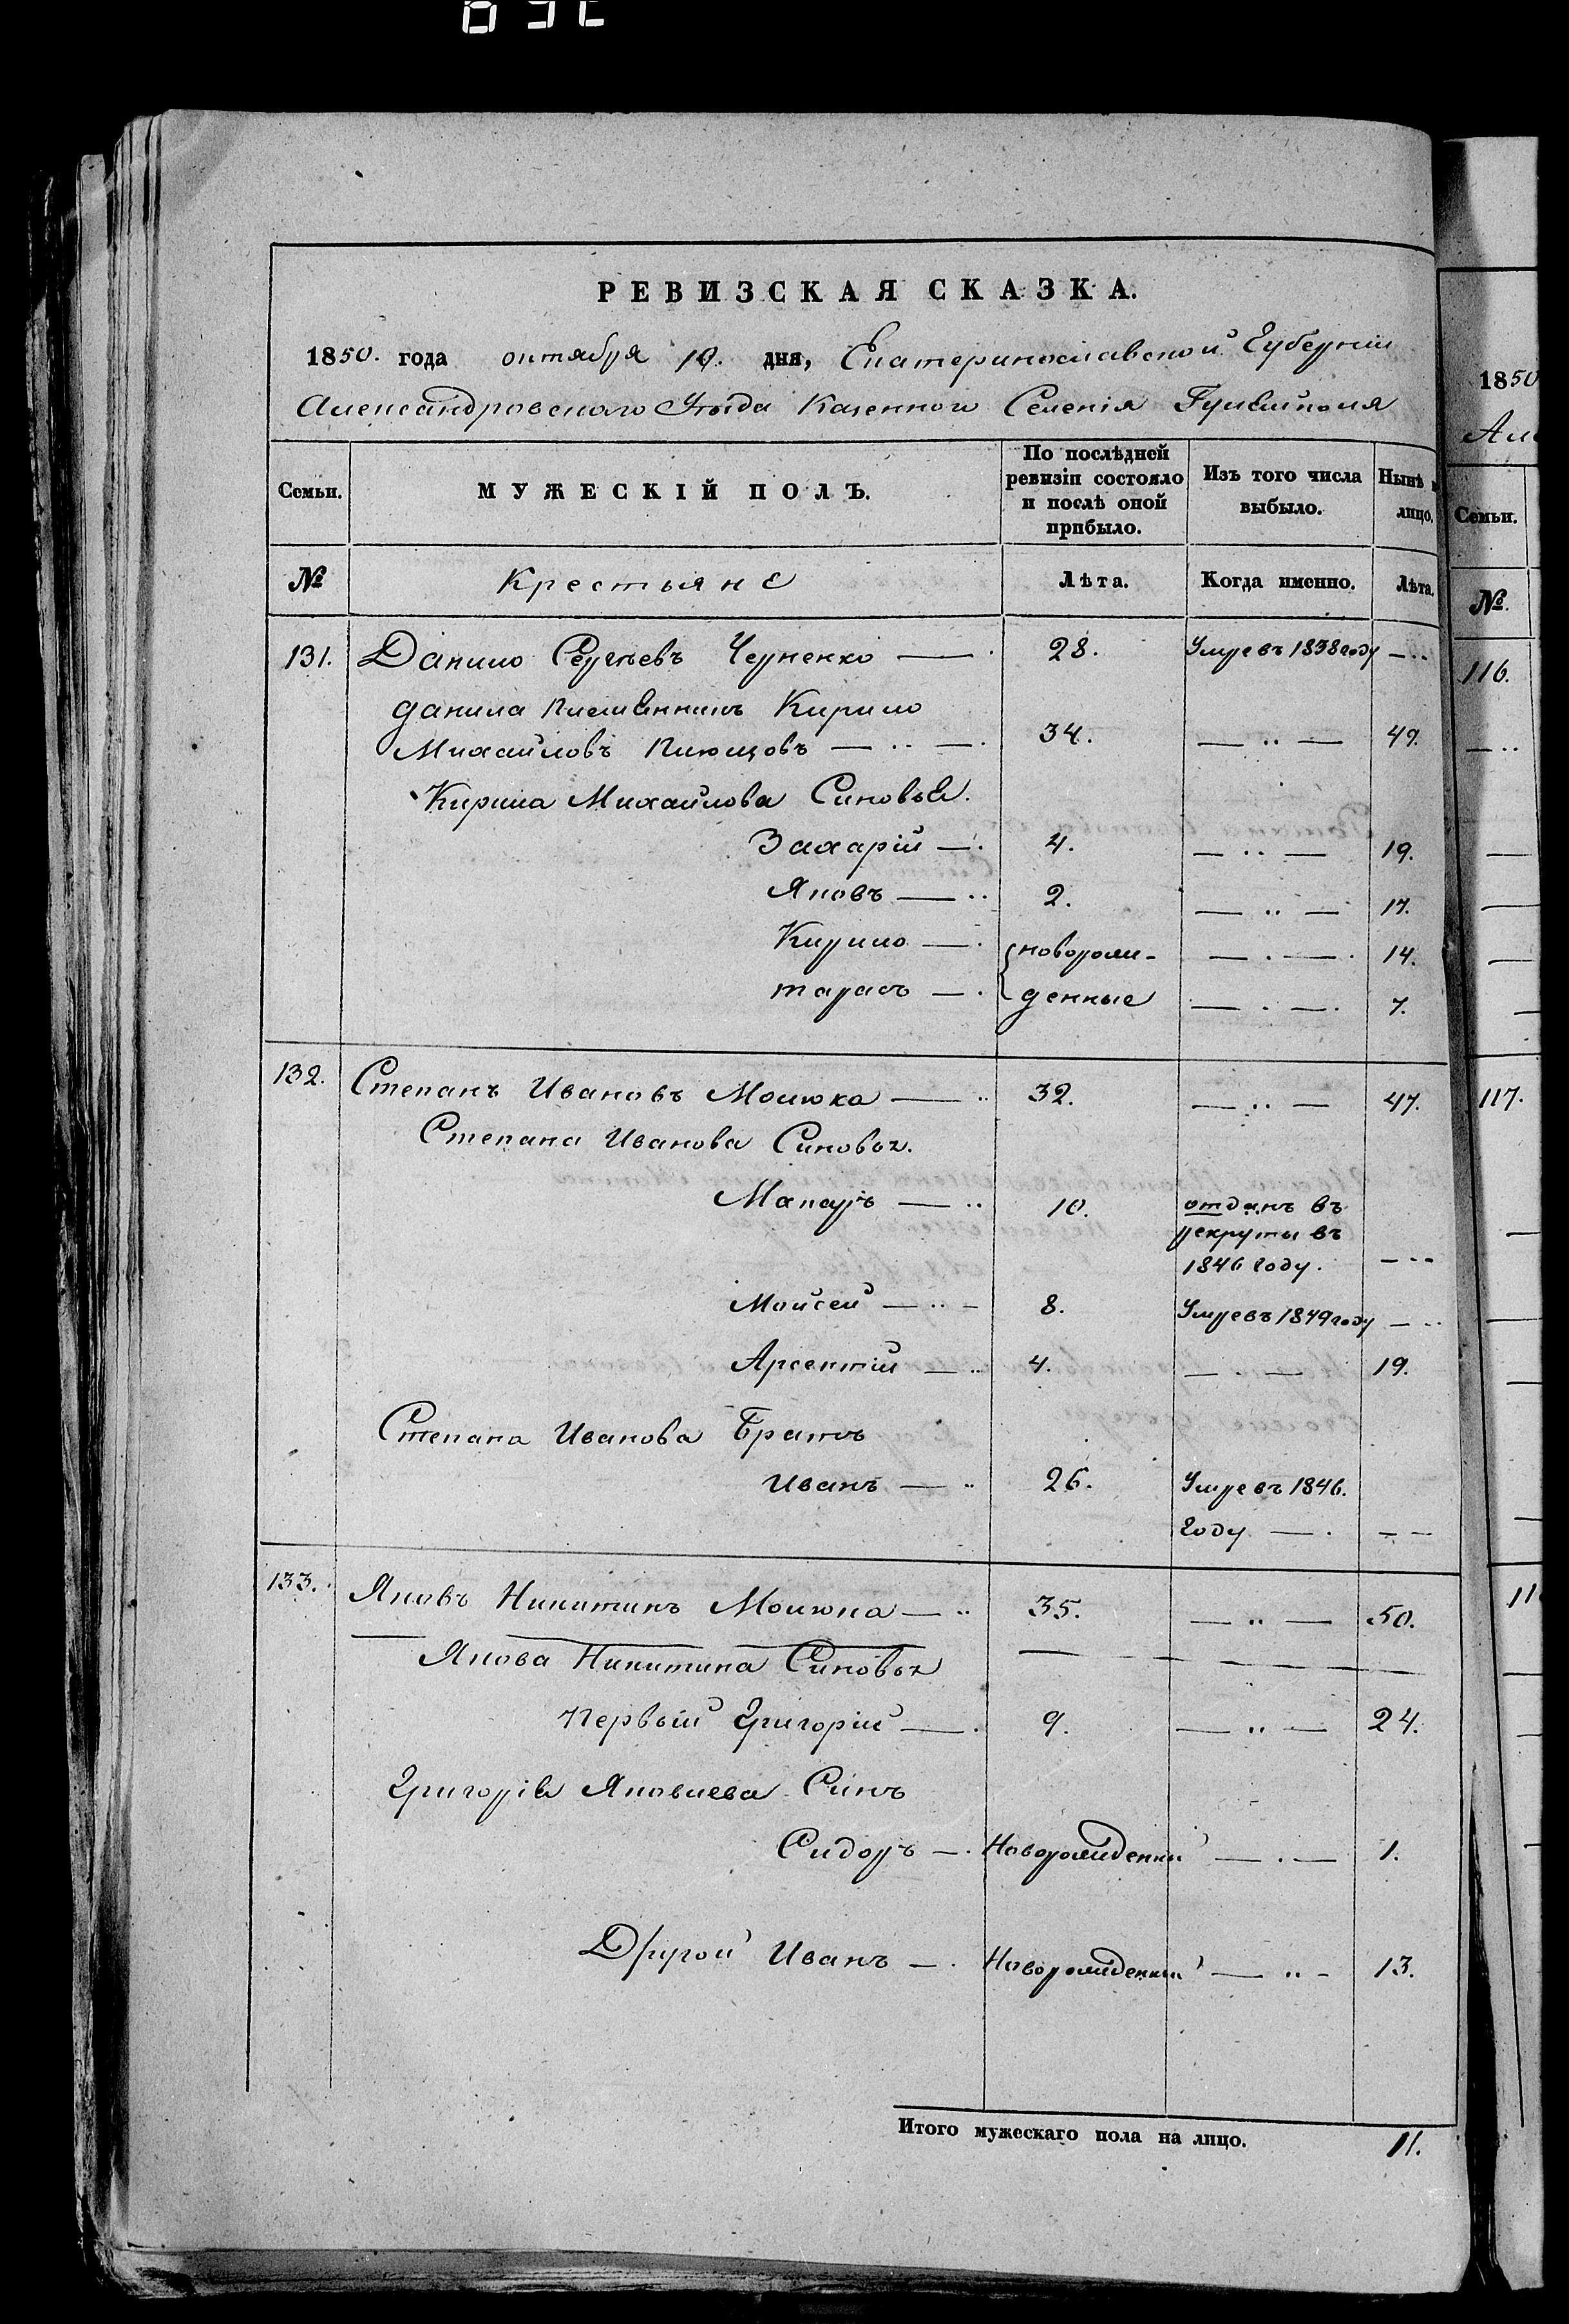 РЕВИЗСКАЯ СКАЗКА.
1850. года октября 19. дня, Екатеринославской Губерніи
Александровскаго Уѣзда Казенного Селенія Гуляйполя
Семьи. МУЖЕСКІЙ ПОЛЪ. По послѣдней ревизіи состояло и послѣ оной прибыло. Изъ того числа выбыло. Нынѣ лицо.
№ Крестьяне Лѣта. Когда именно. Лѣта.
131. Данило Сергѣевъ Черненко — 28. Умре въ 1838 году — ..
Данила племенникъ Кирило
Михайловъ — .. — 34. — .. — 49.
Кирила Михайлова Синовья.
Захарій — . 4. — .. — 19.
Яковъ — .. 2. — .. — 17.
Кирило — . новорож- — . — . 14.
тарасъ — . денные — . — . 7.
132. Степанъ Ивановъ Молюка — .. 32. — .. — 47.
Степана Иванова Синовья.
Макаръ — .. 10. отданъ въ
рекруты въ
1846 году. — --
Мойсей — .. — 8. Умре въ 1849 году — ..
Арсентій — .. 4. — . — 19.
Степана Иванова Братъ
Иванъ — .. 26. Умре въ 1846.
году — . — —
133. Яковъ Никитинъ Молюка — .. 35. — .. — 50.
Якова Никитина Синовья
Первый Григорій — . 9. — .. — 24.
Григорія Яковлева Синъ
Сидоръ — . Новорожденный — . — 1.
Другой Иванъ — . Новорожденный — .. — 13.
Итого мужескаго пола на лицо. 11.
1850
Але
Семьи.
№.
116.
117.